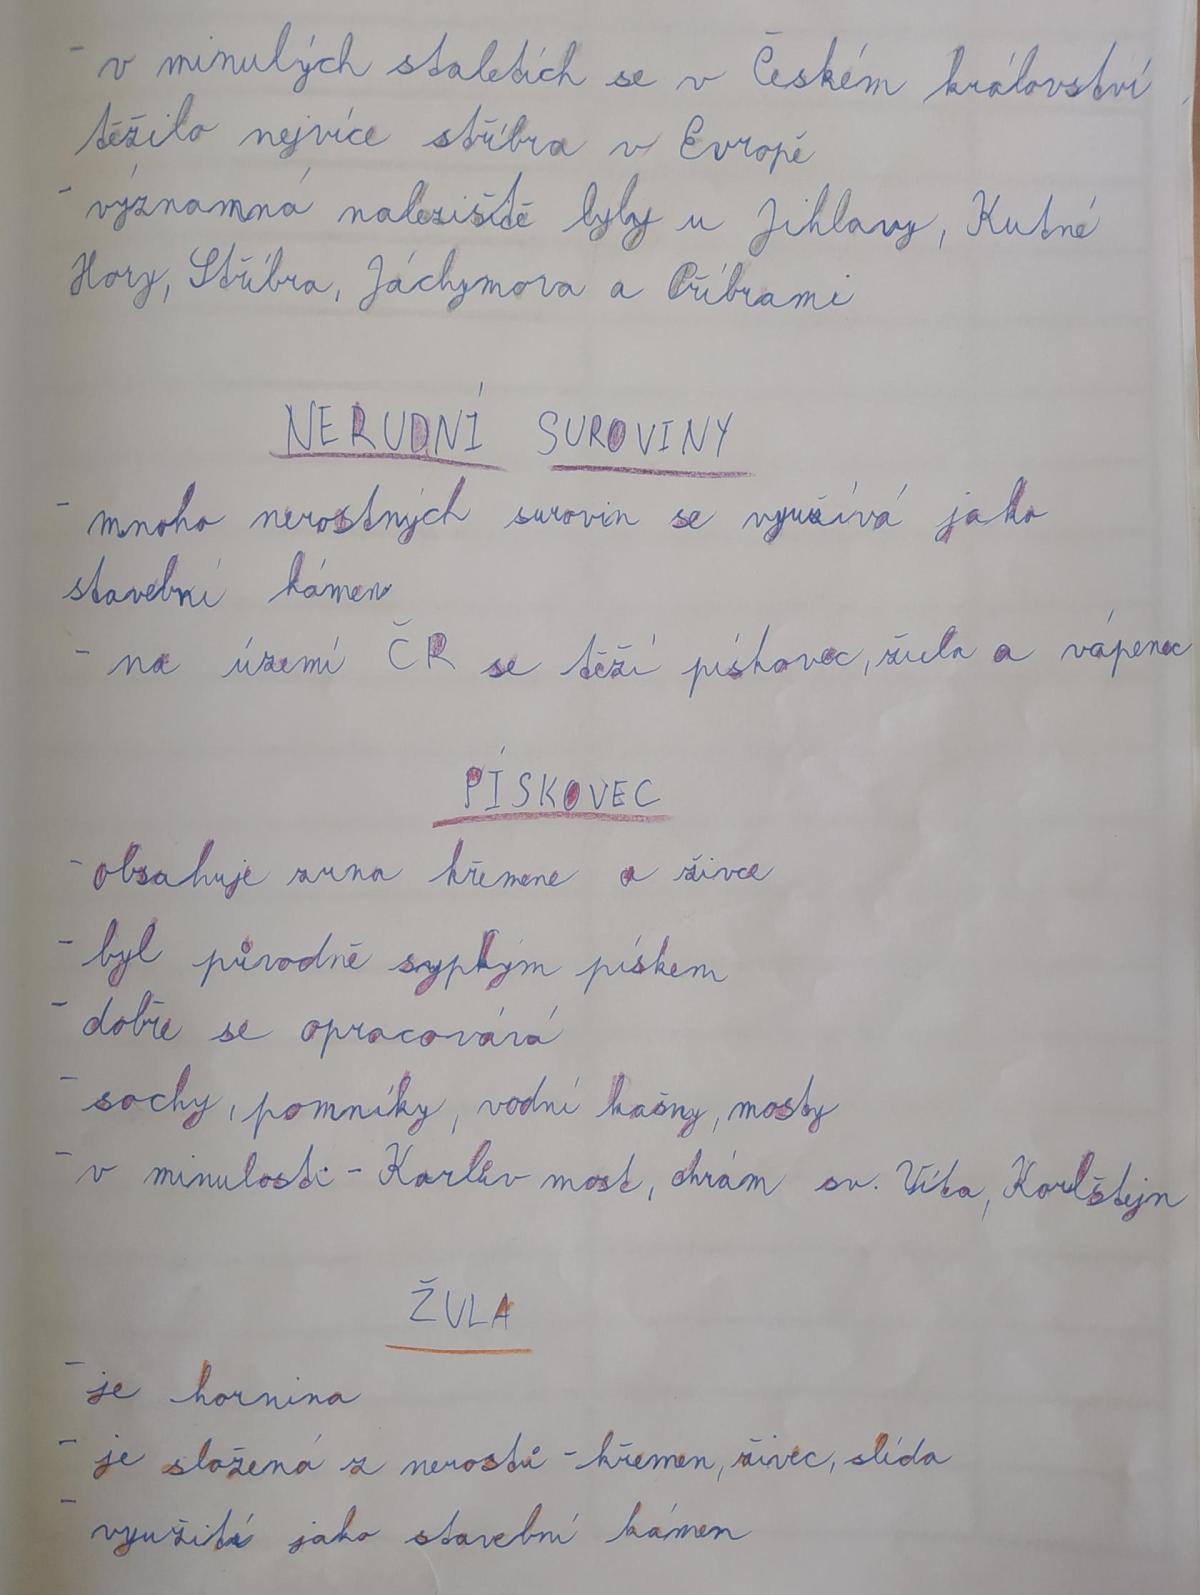 - v minulých staletích se v Českém království
těžilo nejvíce stříbra v Evropě
- významná naleziště byly u Jihlavy, Kutné
Hory, Stříbra, Jáchymova a Příbrami
NERUDNÍ SUROVINY
- mnoho nerostných surovin se využívá jako
stavební kámen
- na území ČR se těží pískovec, žula a vápenec
PÍSKOVEC
- obsahuje zrna křemene a živce
- byl původně sypkým pískem
- dobře se opracovává
- sochy, pomníky, vodní kašny, mosty
- v minulosti - Karlův most, chrám sv. Víta, Karlštejn
ŽULA
- je hornina
- je složená z nerostů - křemen, živec, slída
- využití jako stavební kámen